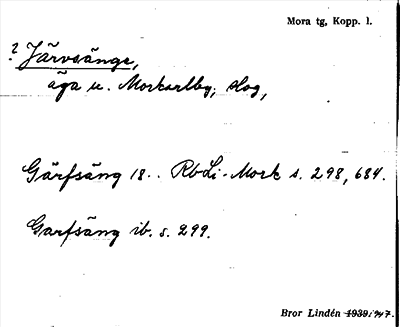 Mora tg, Kopp. l.
? Järvsänge,
äga u. Morkarlby, slog,
Gärfsäng 18 . . RbLi-Mork s. 298, 684.
Garfsäng ib. s. 299.
Bror Lindén 1939.